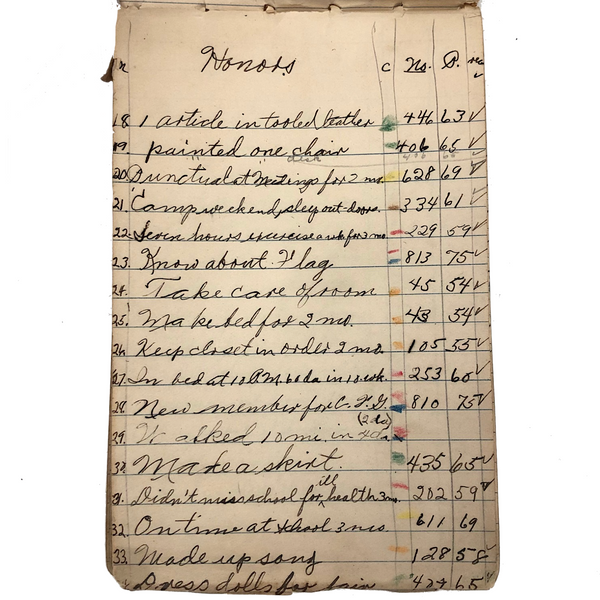 Honors C No. P.
18 1 article in tooled leather 446 63 ✓
19. painted one chair 406 65 ✓
desk
20. Punctual at Meetings for 2 mo. 628 69 ✓
21. Camp weekend, sleep out doors. 334 61 ✓
22. Seven hours exercise a wk for 3 mo 229 59 ✓
23. Know about Flag 813 75 ✓
24. Take care of room 45 54 ✓
25. Make bed for 2 mo. 43 54 ✓
26. Keep closet in order 2 mo. 105 55 ✓
27. In bed at 10 P.M. 6 da in 10 wk. 253 60 ✓
28. New member for C. F. G. 810 75 ✓
29. Walked 10 mi. in 4 da
(2 da)
30. Made a skirt. 435 65 ✓
31. Didn't miss school for ill health 3 mo. 202 59 ✓
32. On time at school 3 mo. 611 69
33. Made up song 128 58 ✓
Dress dolls for fair 424 65